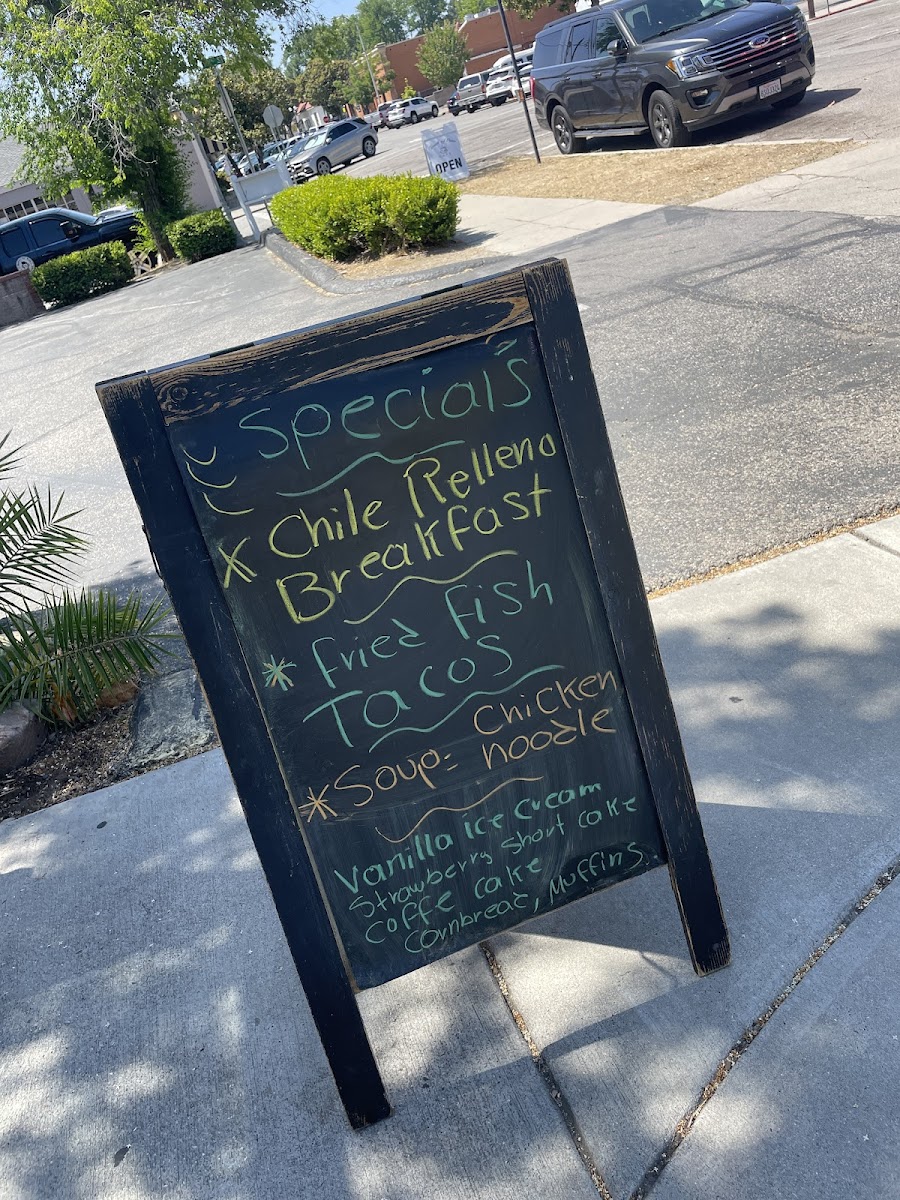 OPEN
Specials
* Chile Relleno
Breakfast
* Fried Fish
Tacos
*Soup: Chicken
noodle
Vanilla ice cream
Strawberry Short cake
Coffe cake
Cornbread, Muffins.